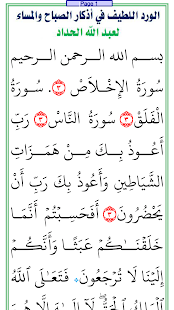 Page 1
الورد اللطيف في أذكار الصباح والمساء
لعبد الله الحداد
بِسمِ اللهِ الرحمنِ الرحيمِ
سُورَةُ الإِخْلَاصِ ٣. سُورَةُ
الْفَلَقِ ٣ سُورَةُ النَّاسِ ٣ رَبِّ
أَعُوذُ بِكَ مِنْ هَمَزَاتِ
الشَّيَاطِينِ وَأَعُوذُ بِكَ رَبِّ أَنْ
يَحْضُرُونِ ٣ أَفَحَسِبْتُمْ أَنَّمَا
خَلَقْنَاكُمْ عَبَثًا وَأَنَّكُمْ
إِلَيْنَا لَا تُرْجَعُونَ * فَتَعَالَى اللَّهُ
الْمَلِكُ الْحَقُّ لَا إِلَهَ إِلَّا هُوَ